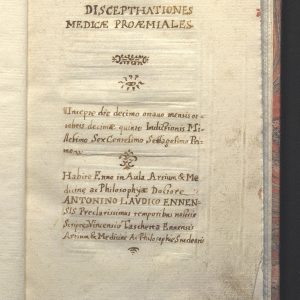 DISCEPTHATIONES
MEDICÆ PROÆMIALES
Incepte die decimo octauo mensis oc
tobris decimæ quinte Indistionis Mi
llesimo Sex Centesimo Settagesimo Pri
mo
Habite Enno in Aula Arsium & Me
dicine ac Philosophyæ Doctore
ANTONINO LAVDICO ENNEN-
SIS Preclarissimus temporibus
Scripte Vincensio Taschetta Ennensis
Arsium & Medicine Ac Philosophie